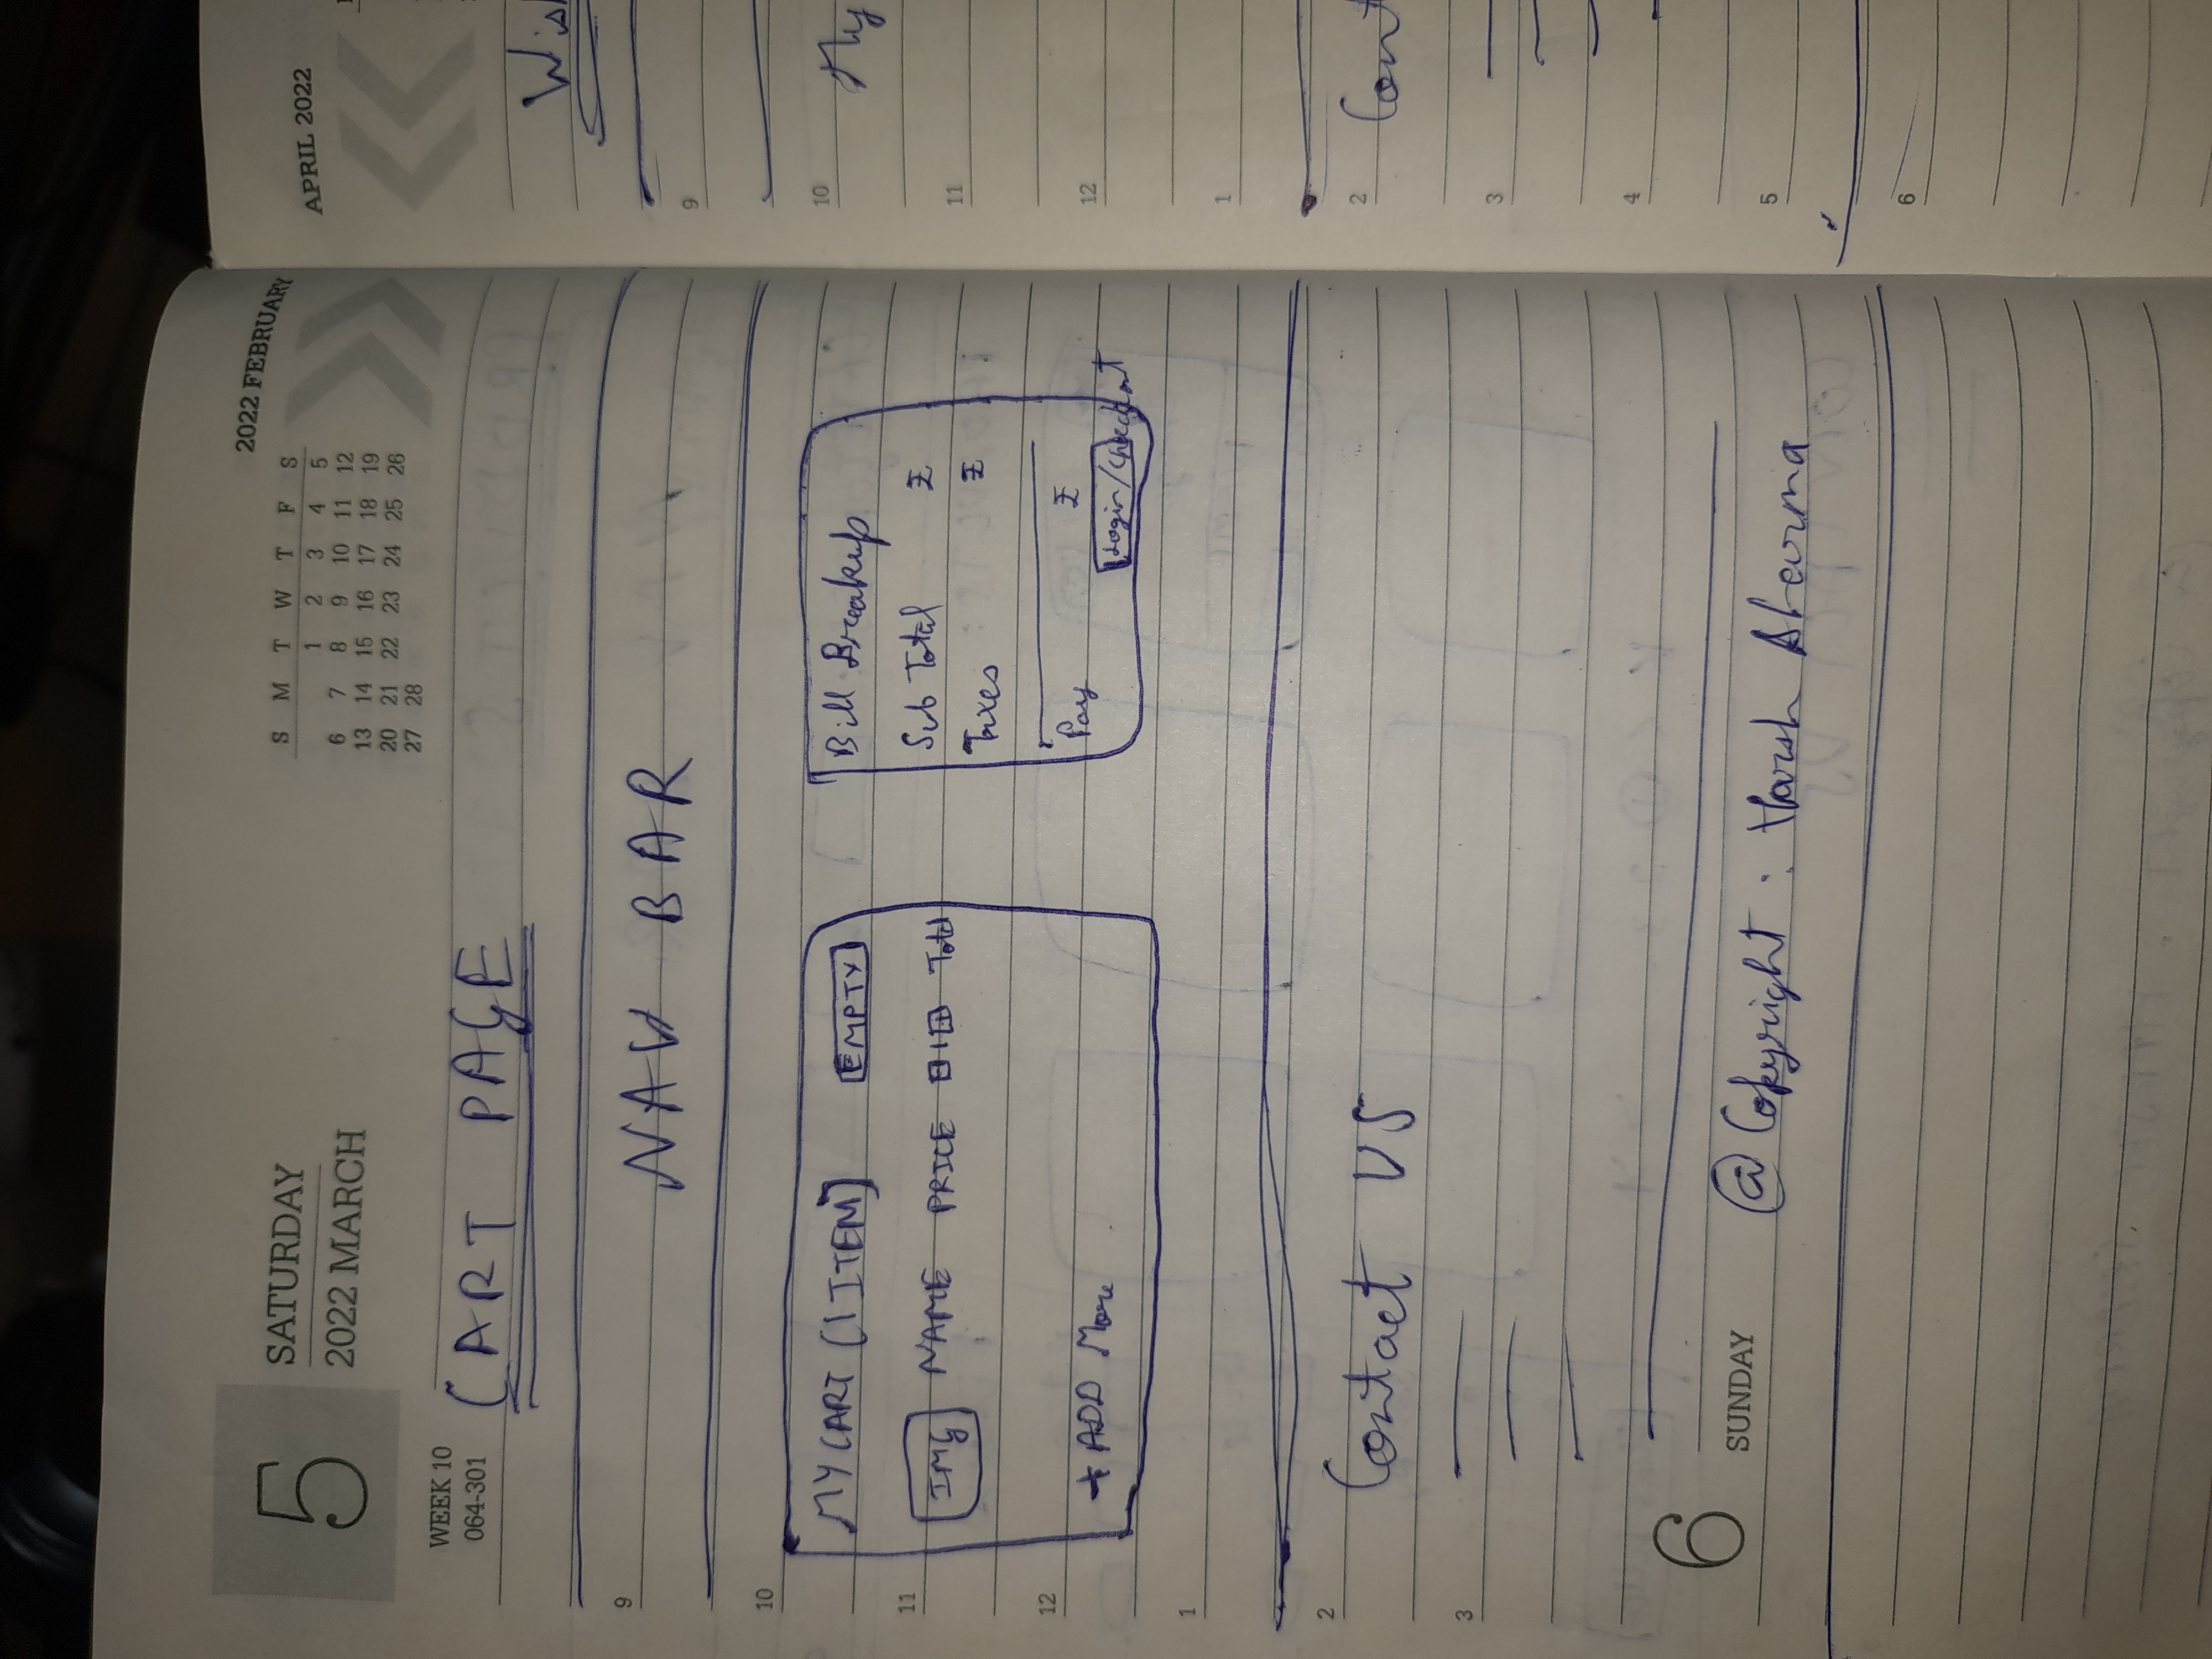 5
SATURDAY
2022 MARCH
WEEK 10
064-301
2022 FEBRUARY
S M T W T F S
1 2 3 4 5
6 7 8 9 10 11 12
13 14 15 16 17 18 19
20 21 22 23 24 25 26
27 28
CART PAGE
9
NAV BAR
10
MY CART [1 ITEM] EMPTY
11
IMG NAME PRICE - 1 + Total
12
+ ADD More
Bill Breakup
Sub Total ₹
Taxes ₹
Pay ₹
Login/Checkout
1
2
Contact US
3
6
SUNDAY
@ Copyright : Harsh Sharma
APRIL 2022
9
10
My
11
12
1
2
3
4
5
6